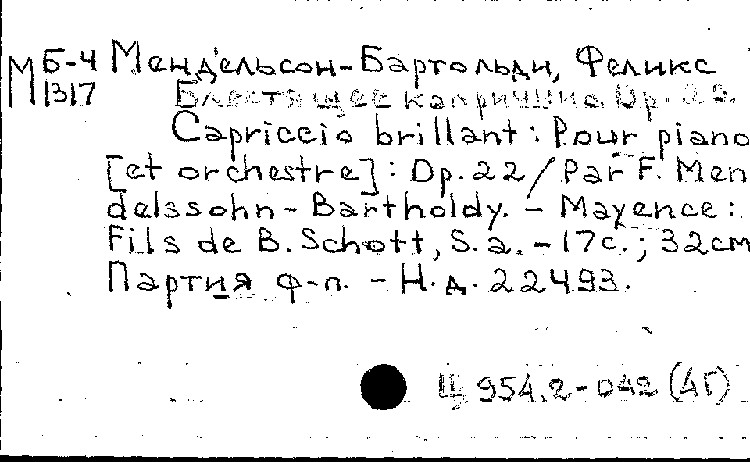 М Б-4 Мендельсон-Бартольди, Феликс
1317 Блестящее каприччио. Op. 22.
Capriccio brillant : Pour piano
[et orchestre] : Op. 22 / Par F. Men
delssohn-Bartholdy. - Mayence :
Fils de B. Schott, S. a. - 17 с. ; 32 см
Партия ф-п. - Н. д. 22493.
Ц 954.2-042 (АГ)